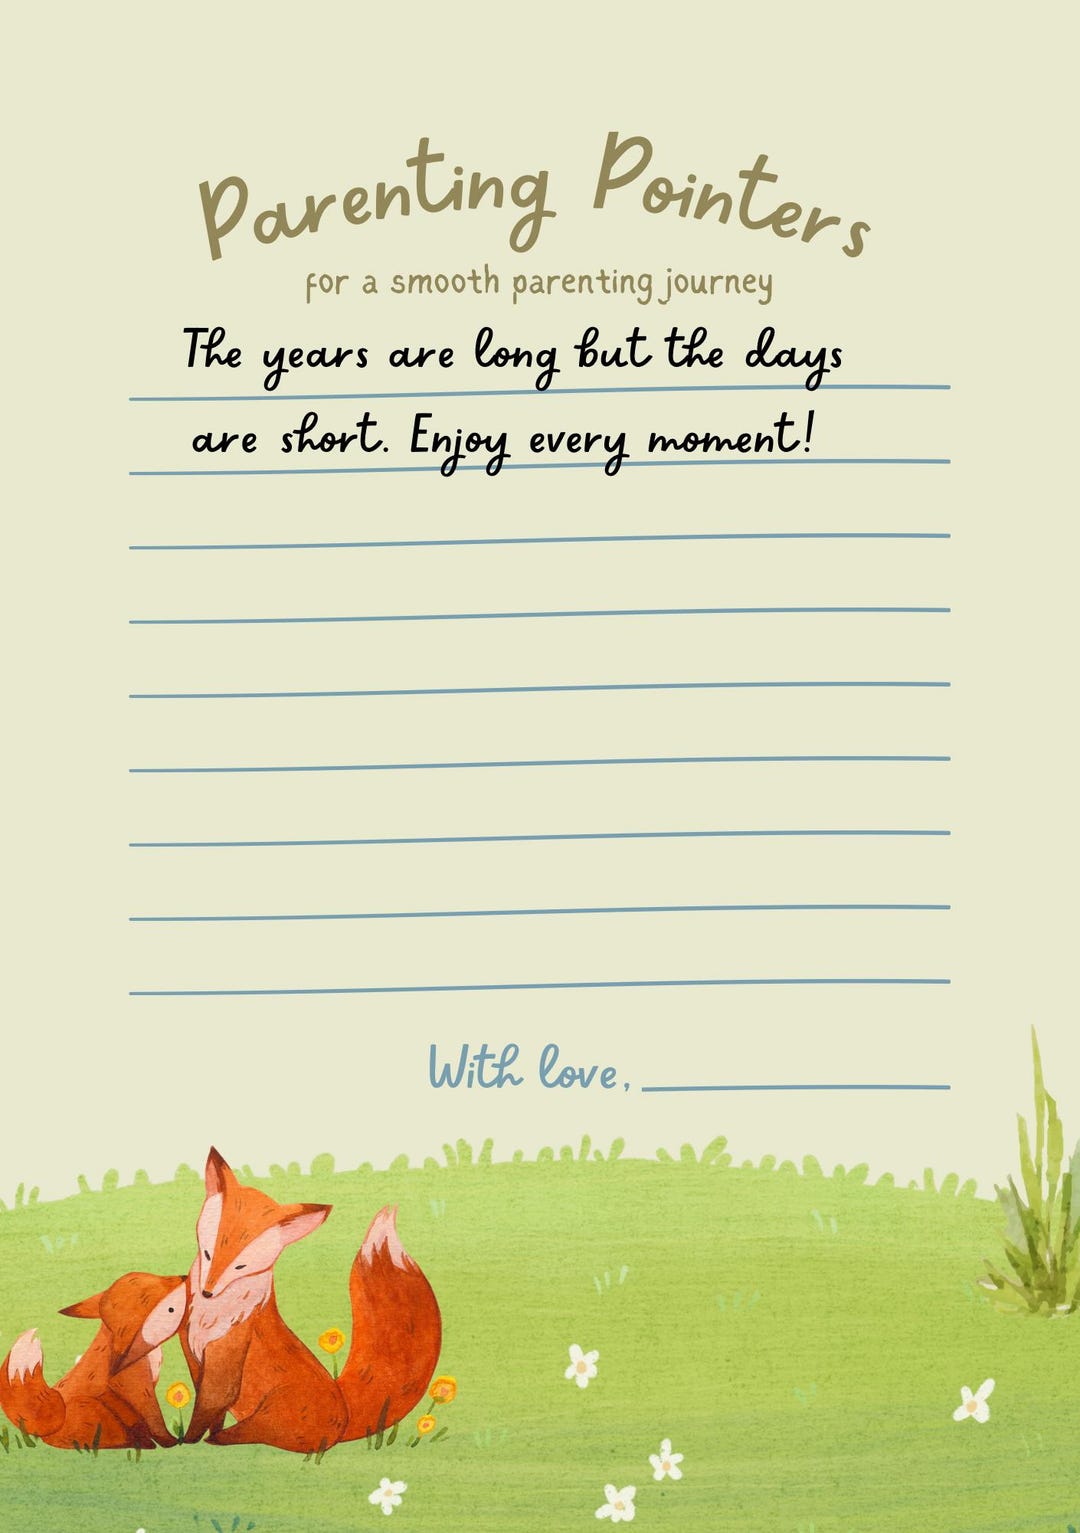 Parenting Pointers
for a smooth parenting journey
The years are long but the days
are short. Enjoy every moment!
With love,